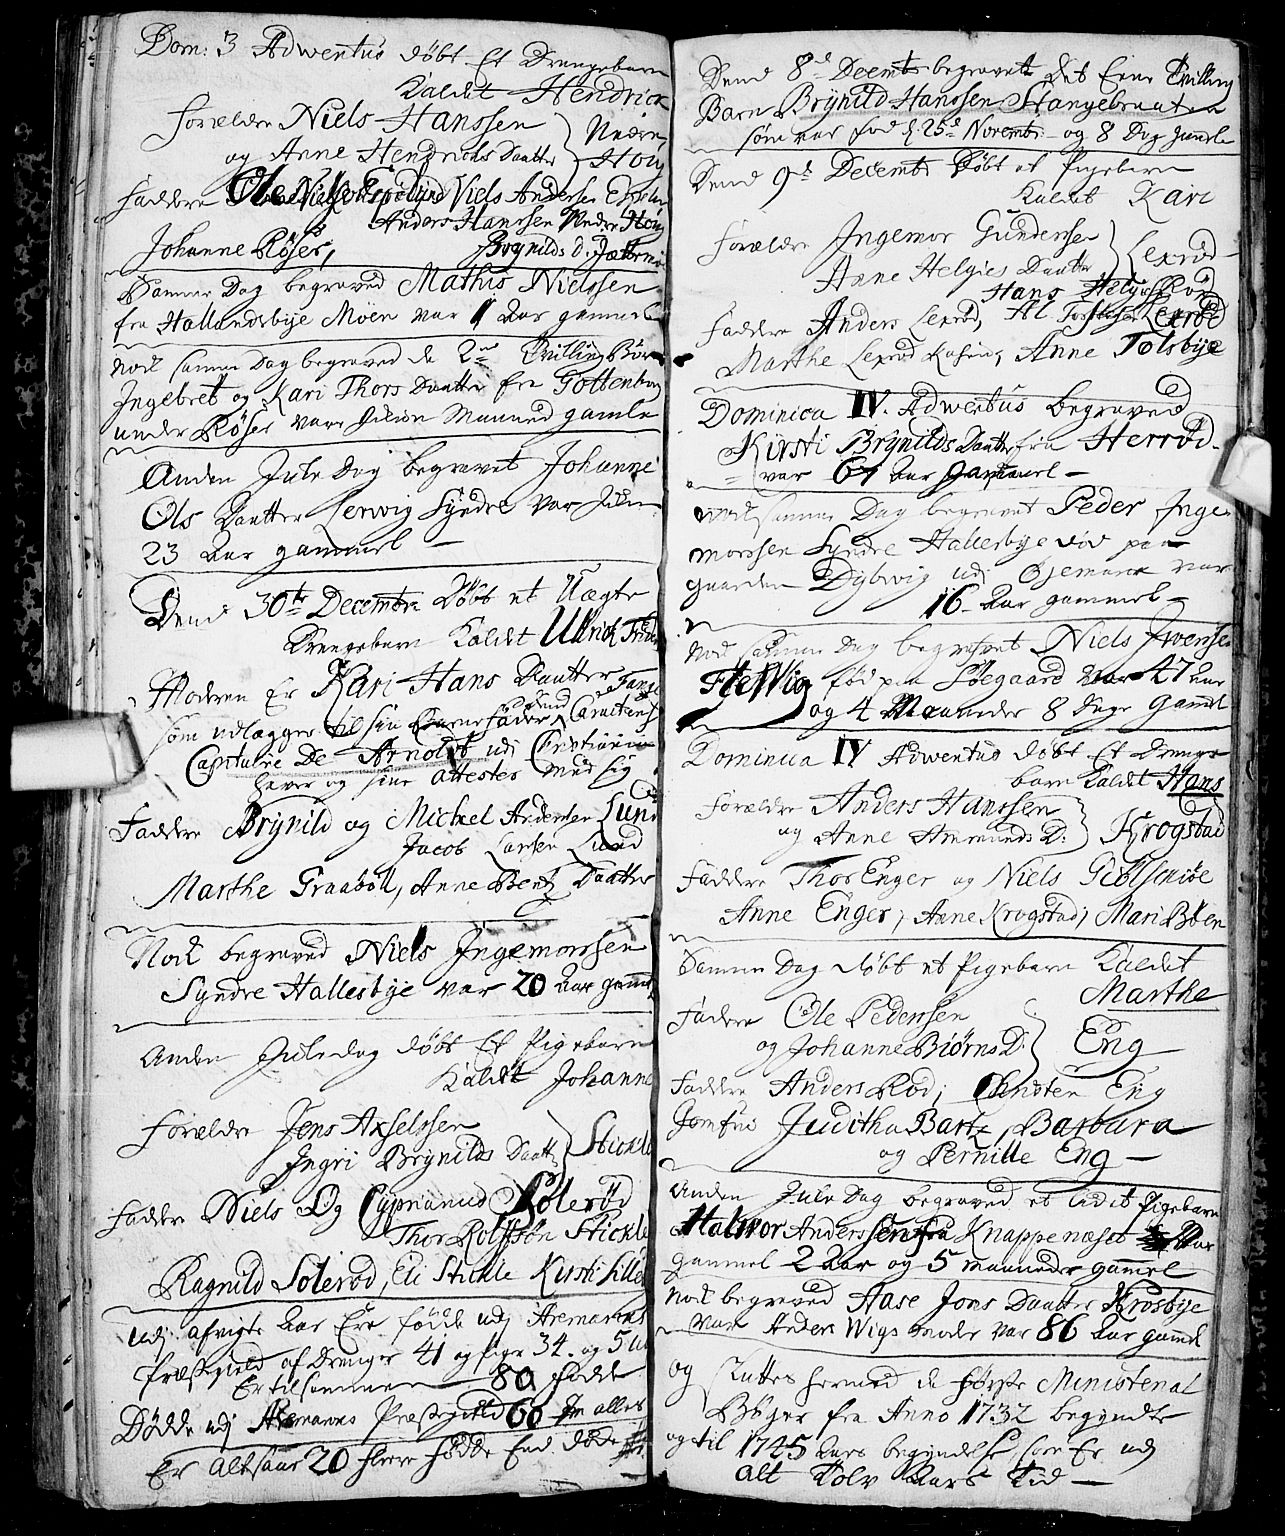 Dom: 3 Adwentus døbt Et Drengebarn
Kaldet Hendrick
Forældre Niels Hanssen
og Anne Hendrichs Daatter
Nedre Houg
Faddere Ole Niels Andersen
Anders Hanssen Nedre Houg
Johanne Røser, Brynilds D.
Samme Dag begraved Mathis Nielssen
fra Hallandsbye Moen var 1 Aar gammel
Nock samme Dag begraved de 2 Tvilling Børn
Ingebret og Kari Thors Daatter fra Gottenborg
under Røser vare Maaned gamle
Anden Jule Dag begravet Johanne
Ols Daatter Lervig Syndre var
23 Aar gammel
Dend 30te Decembr Døbt et Uægte
Drengebarn Kaldet Ulrick Frid
Moderen Er Kari Hans Daatter
som udlægger til sin Barnefader
Capitaine De Arnoldt udj Christiania
haver og sine attester med sig
Faddere Brynild og Michel Andersen Lund
Jacob Larsen Lund
Marthe Graabøl, Anne Bentz Daatter
Nock begraved Niels Ingemorssen
Syndre Hallesbye var 20 Aar gammel
Anden Juledag døbt Et Pigebarn
Kaldet Johanne
Forældre Jens Axelssen
Ingri Brynilds Daatter
Stickle
Faddere Niels Og Cyprianus Solerød
Thor Rolfssøn Stickle
Ragnild Solerød, Eli Stickle Kirsti Lille
Udj afvigte Aar Ere fødde udj Aremarks
Præstegield af Drenger 41 og piger 34. og 5
Er tilsammen 80 fødde
Døde udj Aremarks Præstegield 60 In alles
Er altsaa 20 flere fødde End døde
Dend 8de Decembr begravet det Eene Tvilling
Barn Brynild Hanssen Stangebraaten
som var fød d. 25de Novembr. og 8 Dag gamle
Dend 9de Decembr Døbt et Pigebarn
Kaldet Kari
Forældre Ingemor Gundersen
Anne Helgies Daatter
Lexrød
Hans Helgies
Faddere Anders Lexrød, Lexrød
Marthe Lexrød, Anne Tolsbye
Dominica IV. Adwentus begraved
Kirsti Brynilds Daatter fra Herrød
var 67 Aar gammel
Nock samme Dag begravet Peder Inge-
morssen Syndre Hallesbye død paa
gaarden Dybwig udj Øjemark var
16 Aar gammel
Nock samme Dag begravet Niels Iversen
Helwig fød paa Søegaard var 47 Aar
og 4 Maaneder 8 Dage Gaml
Dominica IV Adwentus døbt Et Drenge-
barn Kaldet Hans
Forældre Anders Hanssen
og Anne Amunds D:
Krogstad
Faddere Thor Enger og Niels
Anne Enger, Anne Krogstad, Mari Bøen
Samme Dag døbt et Pigebarn Kaldet
Marthe
Fadere Ole Pedersen
og Johanne Biørns D.
Eng
Faddere Anders Rød, Christen Eng
Jomfru Juditha Bartz, Barbara
og Pernille Eng
Anden Jule Dag begraved et lidet Pigebarn
Halwor Anderssen fra Knappenæset Aar
Gammel 2 Aar og 5 maaneder gamel
Nock begraved Aase Jons Daatter Krosbye
var Anders Wigs moder var 86 Aar gamel
og Slutter hermed de første Ministerial
Bøger fra Anno 1732 begyndte
og til 1745 Aars begyndelse, som Er udj
alt Tolv Aars Tid